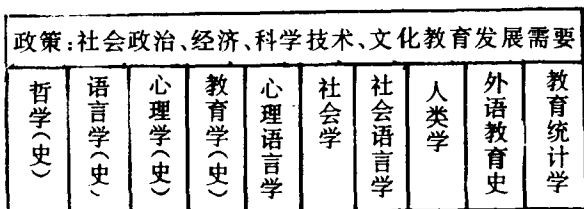 政策:社会政治、经济、科学技术、文化教育发展需要
哲学(史)
语言学(史、
心理学(史)
教育学(史)
心理语言学
社会学
社会语言学
人类学
外语教育史
教育统计学